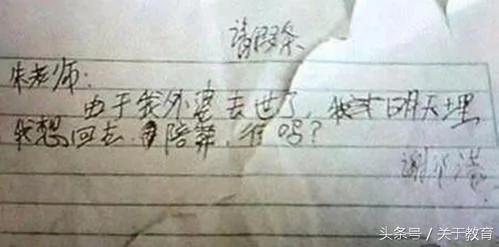 请假条
朱老师:
由于我外婆去世了,我才明天埋
我想回去陪葬,准吗?
谢
头条号/关于教育